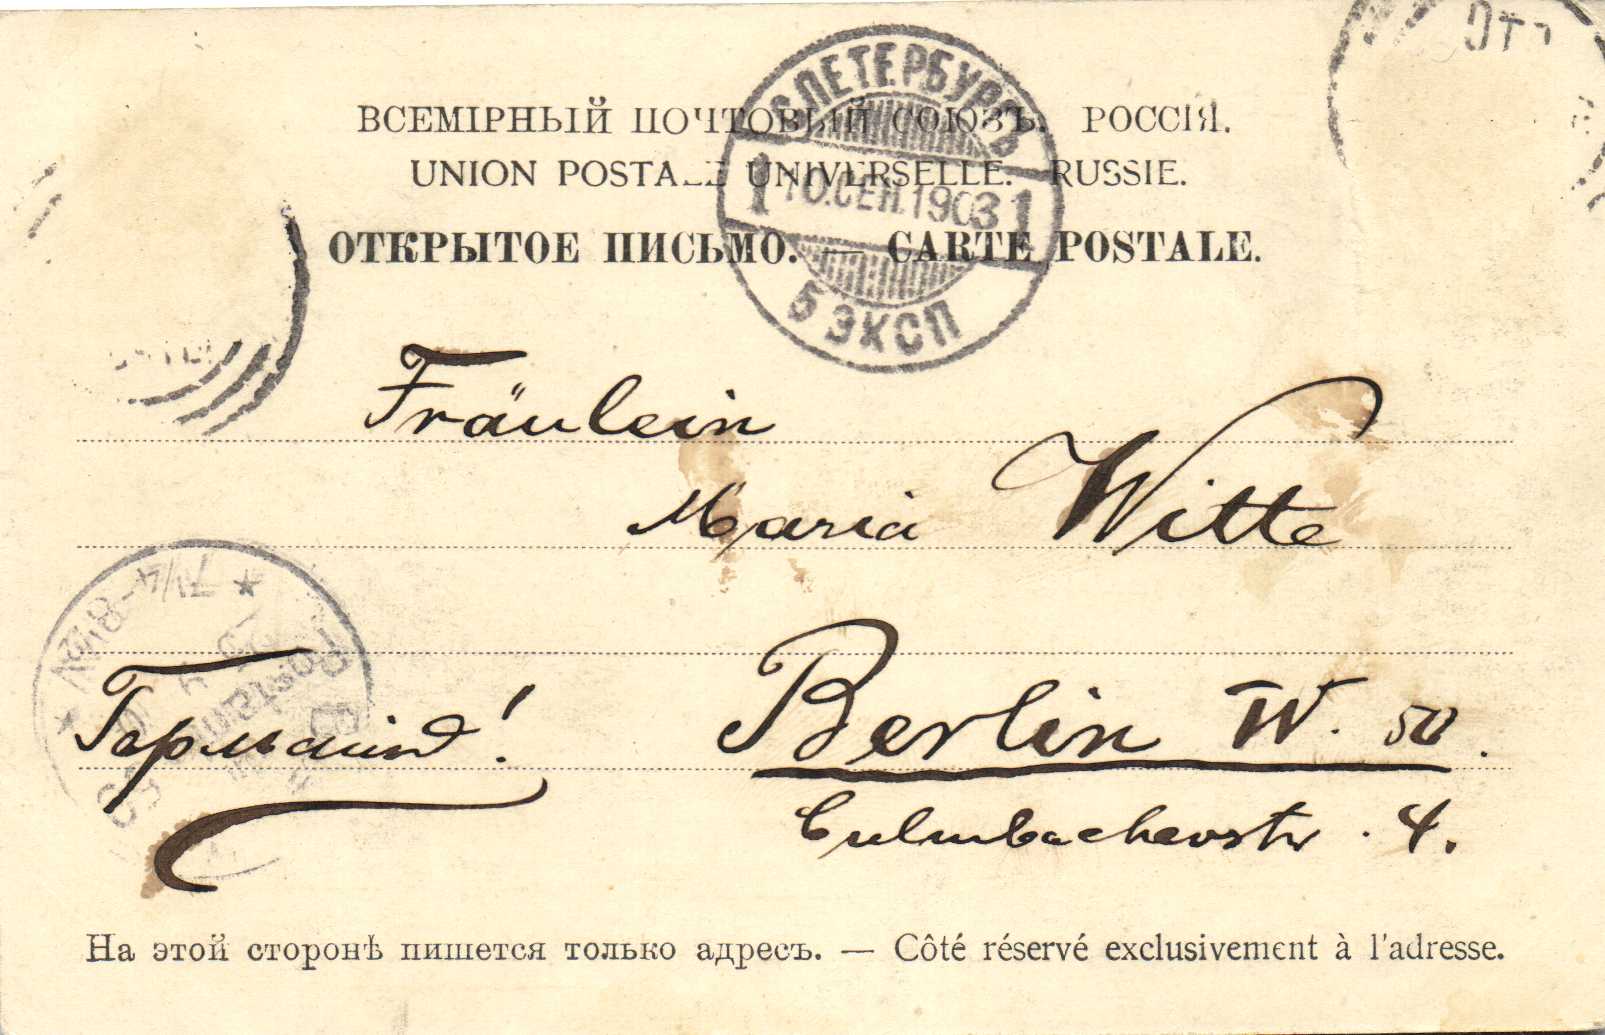 ВСЕМІРНЫЙ ПОЧТОВЫЙ СОЮЗЪ. РОССІЯ.
UNION POSTALE UNIVERSELLE. RUSSIE.
ОТКРЫТОЕ ПИСЬМО. — CARTE POSTALE.
С.ПЕТЕРБУРГЪ
1 10.СЕН.1903 1
5 ЭКСП
Fräulein
Maria Witte
Германія!
Berlin W. 50.
Culmbacherstr. 4.
7¼-8½N
На этой сторонѣ пишется только адресъ. — Côté réservé exclusivement à l'adresse.